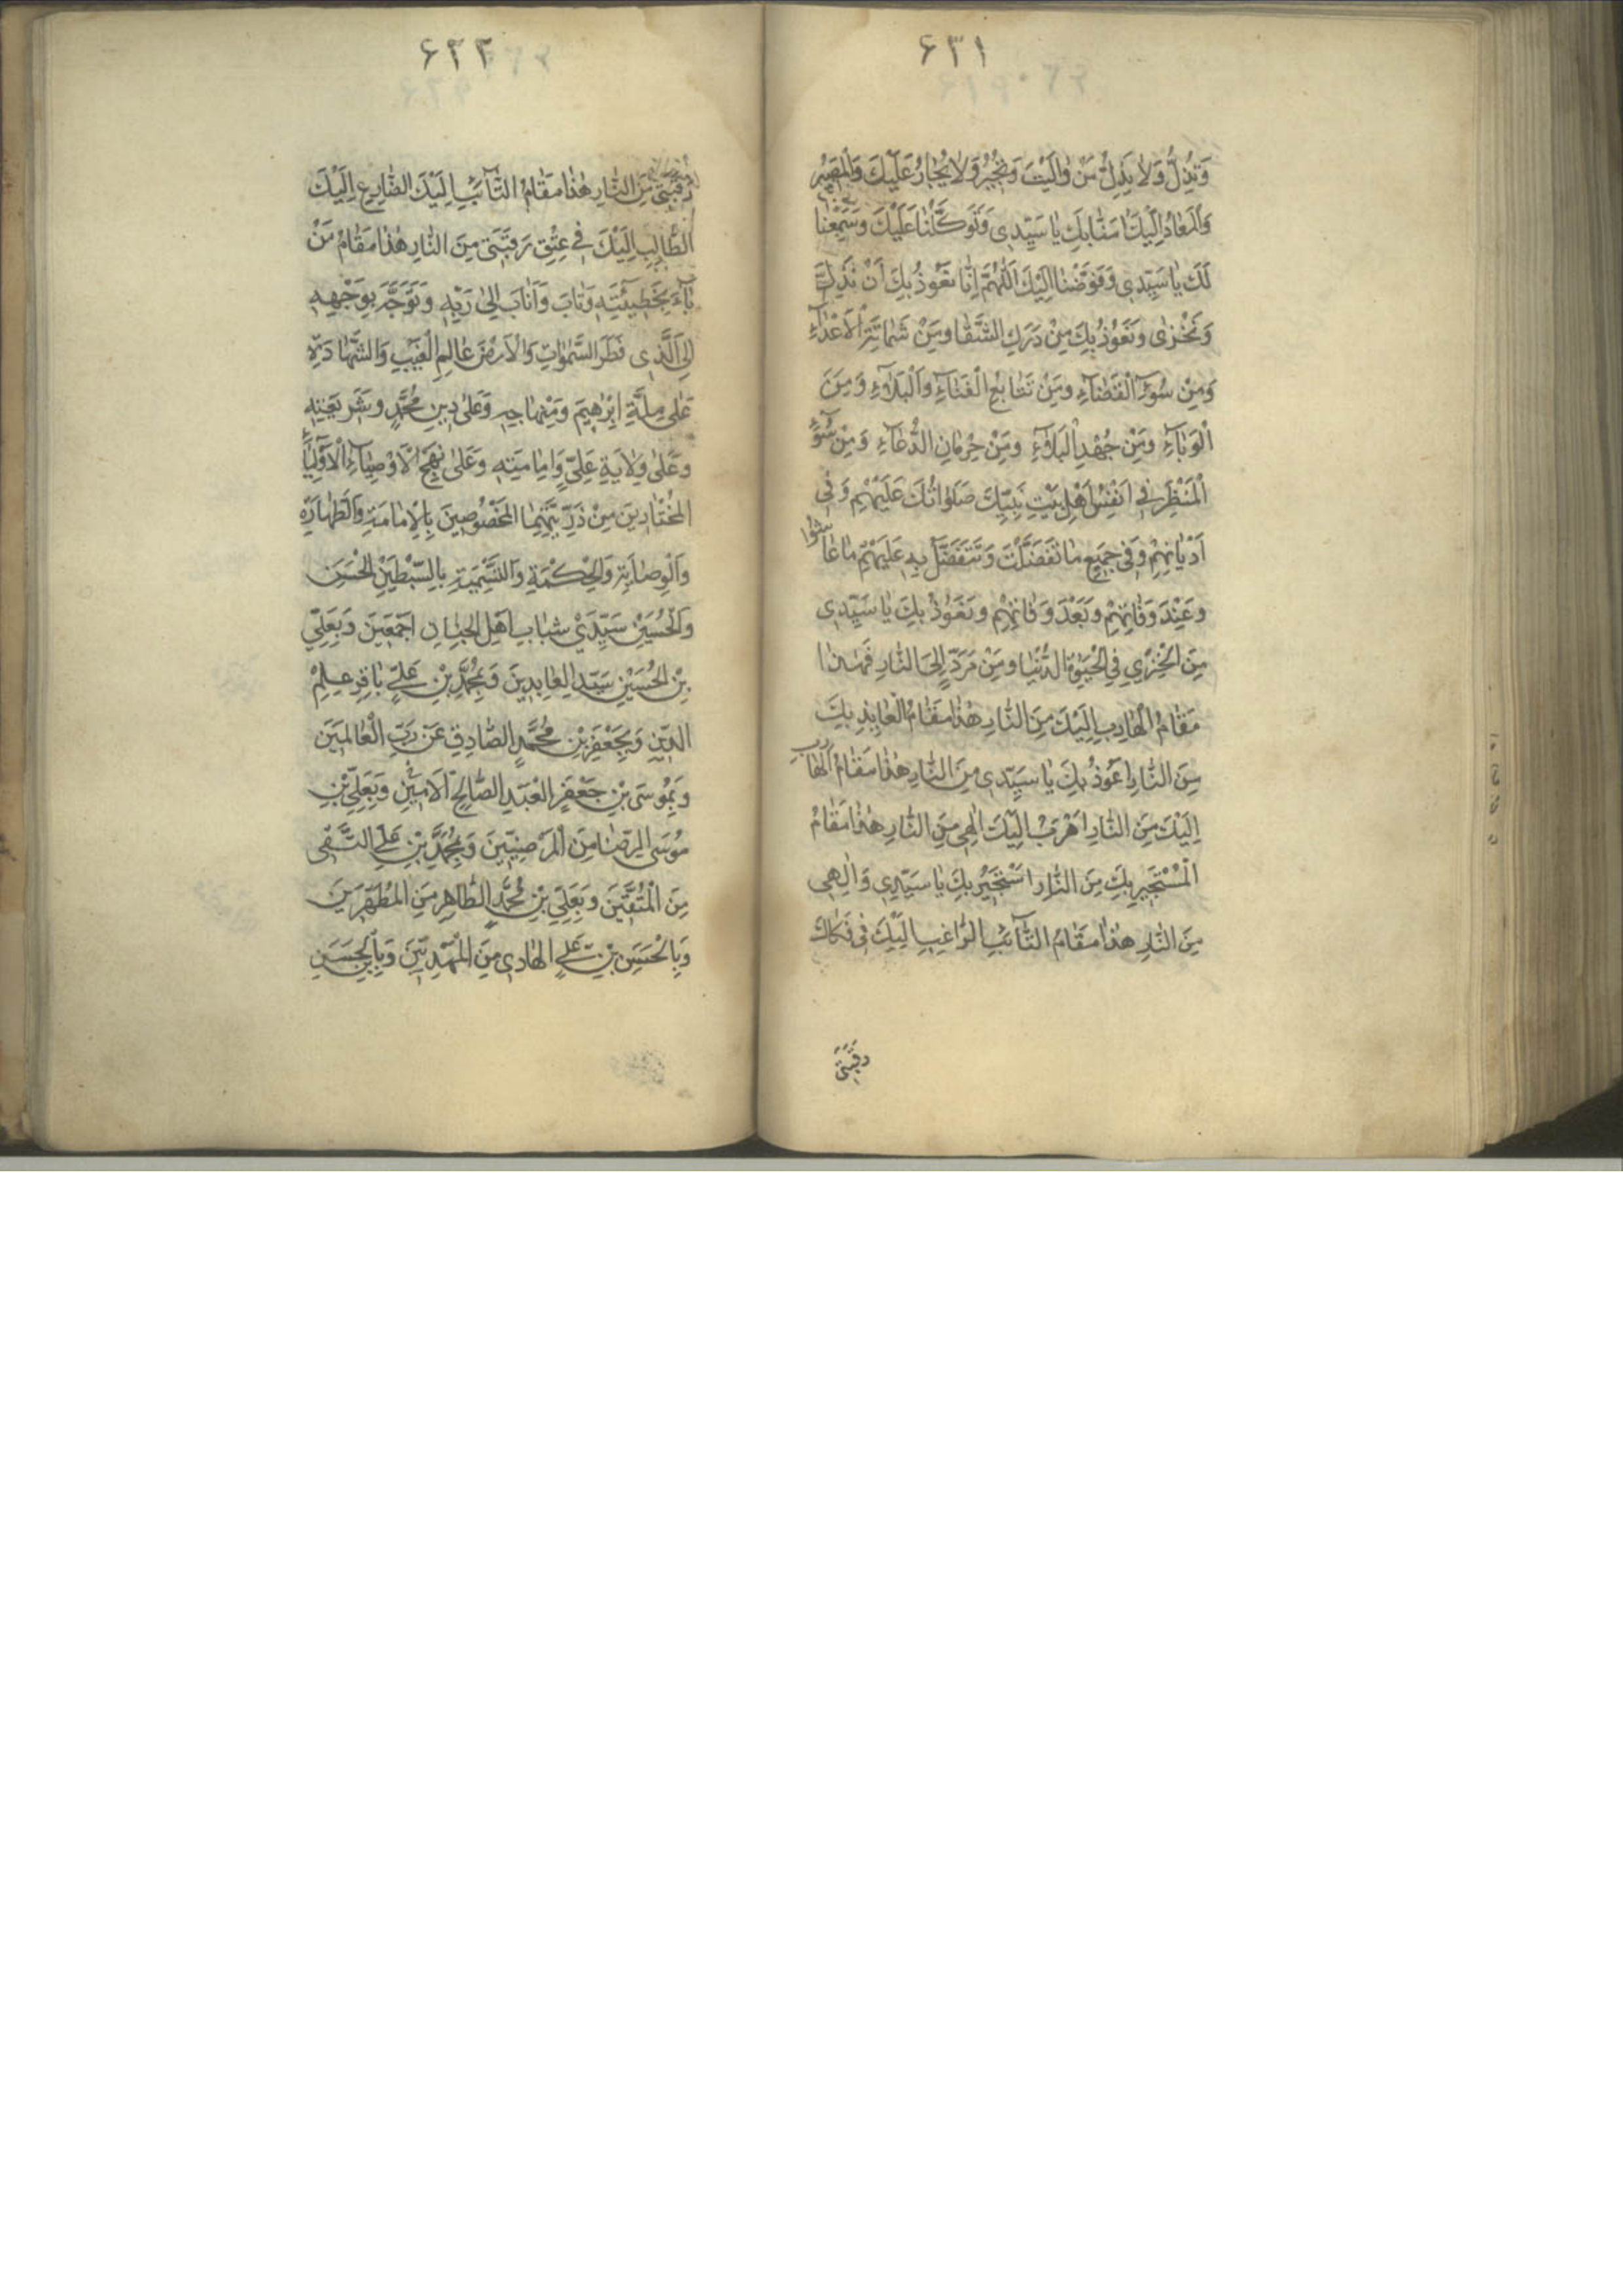 ۶۳۱
وَتُذِلُّ وَلَا يَذِلُّ مَنْ وَالَيْتَ وَتُجِيرُ وَلَا يُجَارُ عَلَيْكَ وَالْمَصِيرُ
وَالْمَعَادُ إِلَيْكَ يَا سَيِّدِي وَتَوَكَّلْنَا عَلَيْكَ وَسَمِعْنَا
لَكَ يَا سَيِّدِي وَفَوَّضْنَا إِلَيْكَ اَللّٰهُمَّ إِنَّا نَعُوذُ بِكَ أَنْ نَذِلَّ
وَنَخْزٰى وَنَعُوذُ بِكَ مِنْ دَرَكِ الشَّقَا وَمِنْ شَمَاتَةِ الْأَعْدَآءِ
وَمِنْ سُوۤءِ الْقَضَآءِ وَمِنْ تَتَابُعِ الْفَنَآءِ وَالْبَلَآءِ وَمِنَ
الْوَبَآءِ وَمِنْ جُهْدِ الْبَلَآءِ وَمِنْ حِرْمَانِ الدُّعَآءِ وَمِنْ سُوۤءِ
الْمَنْظَرِ فِي أَنْفُسِ أَهْلِ بَيْتِ نَبِيِّكَ صَلَوَاتُكَ عَلَيْهِمْ وَفِي
أَدْيَانِهِمْ وَفِي جَمِيعِ مَا تَفَضَّلْتَ وَتَتَفَضَّلُ بِهِ عَلَيْهِمْ مَا عَاشُوا
وَعِنْدَ وَفَاتِهِمْ وَبَعْدَ وَفَاتِهِمْ وَنَعُوذُ بِكَ يَا سَيِّدِي
مِنَ الْخِزْيِ فِي الْحَيٰوةِ الدُّنْيَا وَمِنْ مَرَدٍّ إِلَى النَّارِ فَهٰذَا
مَقَامُ الْهَارِبِ إِلَيْكَ مِنَ النَّارِ هٰذَا مَقَامُ الْعَائِذِ بِكَ
مِنَ النَّارِ أَعُوذُ بِكَ يَا سَيِّدِي مِنَ النَّارِ هٰذَا مَقَامُ الْهَارِبِ
إِلَيْكَ مِنَ النَّارِ أَهْرُبُ إِلَيْكَ إِلٰهِي مِنَ النَّارِ هٰذَا مَقَامُ
الْمُسْتَجِيرِ بِكَ مِنَ النَّارِ أَسْتَجِيرُ بِكَ يَا سَيِّدِي وَإِلٰهِي
مِنَ النَّارِ هٰذَا مَقَامُ التَّآئِبِ الرَّاغِبِ إِلَيْكَ فِي فَكَاكِ
رَقَبَتِي
۶۳۲
رَقَبَتِي مِنَ النَّارِ هٰذَا مَقَامُ التَّآئِبِ إِلَيْكَ الضَّارِعِ إِلَيْكَ
الطَّالِبِ إِلَيْكَ فِي عِتْقِ رَقَبَتِي مِنَ النَّارِ هٰذَا مَقَامُ مَنْ
بَآءَ بِخَطِيئَتِهِ وَتَابَ وَأَنَابَ إِلَىٰ رَبِّهِ وَتَوَجَّهَ بِوَجْهِهِ
إِلَى الَّذِي فَطَرَ السَّمٰوَاتِ وَالْأَرْضَ عَالِمِ الْغَيْبِ وَالشَّهَادَةِ
عَلَى مِلَّةِ إِبْرٰهِيمَ وَمِنْهَاجِهِ وَعَلَىٰ دِينِ مُحَمَّدٍ وَشَرِيعَتِهِ
وَعَلَىٰ وِلَايَةِ عَلِيٍّ وَإِمَامَتِهِ وَعَلَىٰ نَهْجِ الْأَوْصِيَآءِ الْأَوْلِيَآءِ
الْمُخْتَارِينَ مِنْ ذُرِّيَّتِهِمَا الْمَخْصُوصِينَ بِالْإِمَامَةِ وَالطَّهَارَةِ
وَالْوِصَايَةِ وَالْحِكْمَةِ وَالتَّسْمِيَةِ بِالسِّبْطَيْنِ الْحَسَنِ
وَالْحُسَيْنِ سَيِّدَيْ شَبَابِ أَهْلِ الْجِنَانِ أَجْمَعِينَ وَبِعَلِيِّ
بْنِ الْحُسَيْنِ سَيِّدِ الْعَابِدِينَ وَبِمُحَمَّدِ بْنِ عَلِيٍّ بَاقِرِ عِلْمِ
الدِّينِ وَبِجَعْفَرِ بْنِ مُحَمَّدٍ الصَّادِقِ عَنْ رَبِّ الْعَالَمِينَ
وَبِمُوسَى بْنِ جَعْفَرٍ الْعَبْدِ الصَّالِحِ الْأَمِينِ وَبِعَلِيِّ بْنِ
مُوسَى الرِّضَا مِنَ الْمَرْضِيِّينَ وَبِمُحَمَّدِ بْنِ عَلِيٍّ التَّقِي
مِنَ الْمُتَّقِينَ وَبِعَلِيِّ بْنِ مُحَمَّدٍ الطَّاهِرِ مِنَ الْمُطَهَّرِينَ
وَبِالْحَسَنِ بْنِ عَلِيٍّ الْهَادِي مِنَ الْمَهْدِيِّينَ وَبِابْنِ الْحَسَنِ